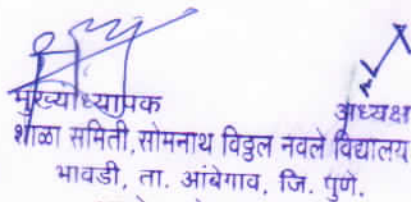 मुख्याध्यापक अध्यक्ष
शाळा समिती,सोमनाथ विठ्ठल नवले विद्यालय
भावडी, ता. आंबेगाव, जि. पुणे.